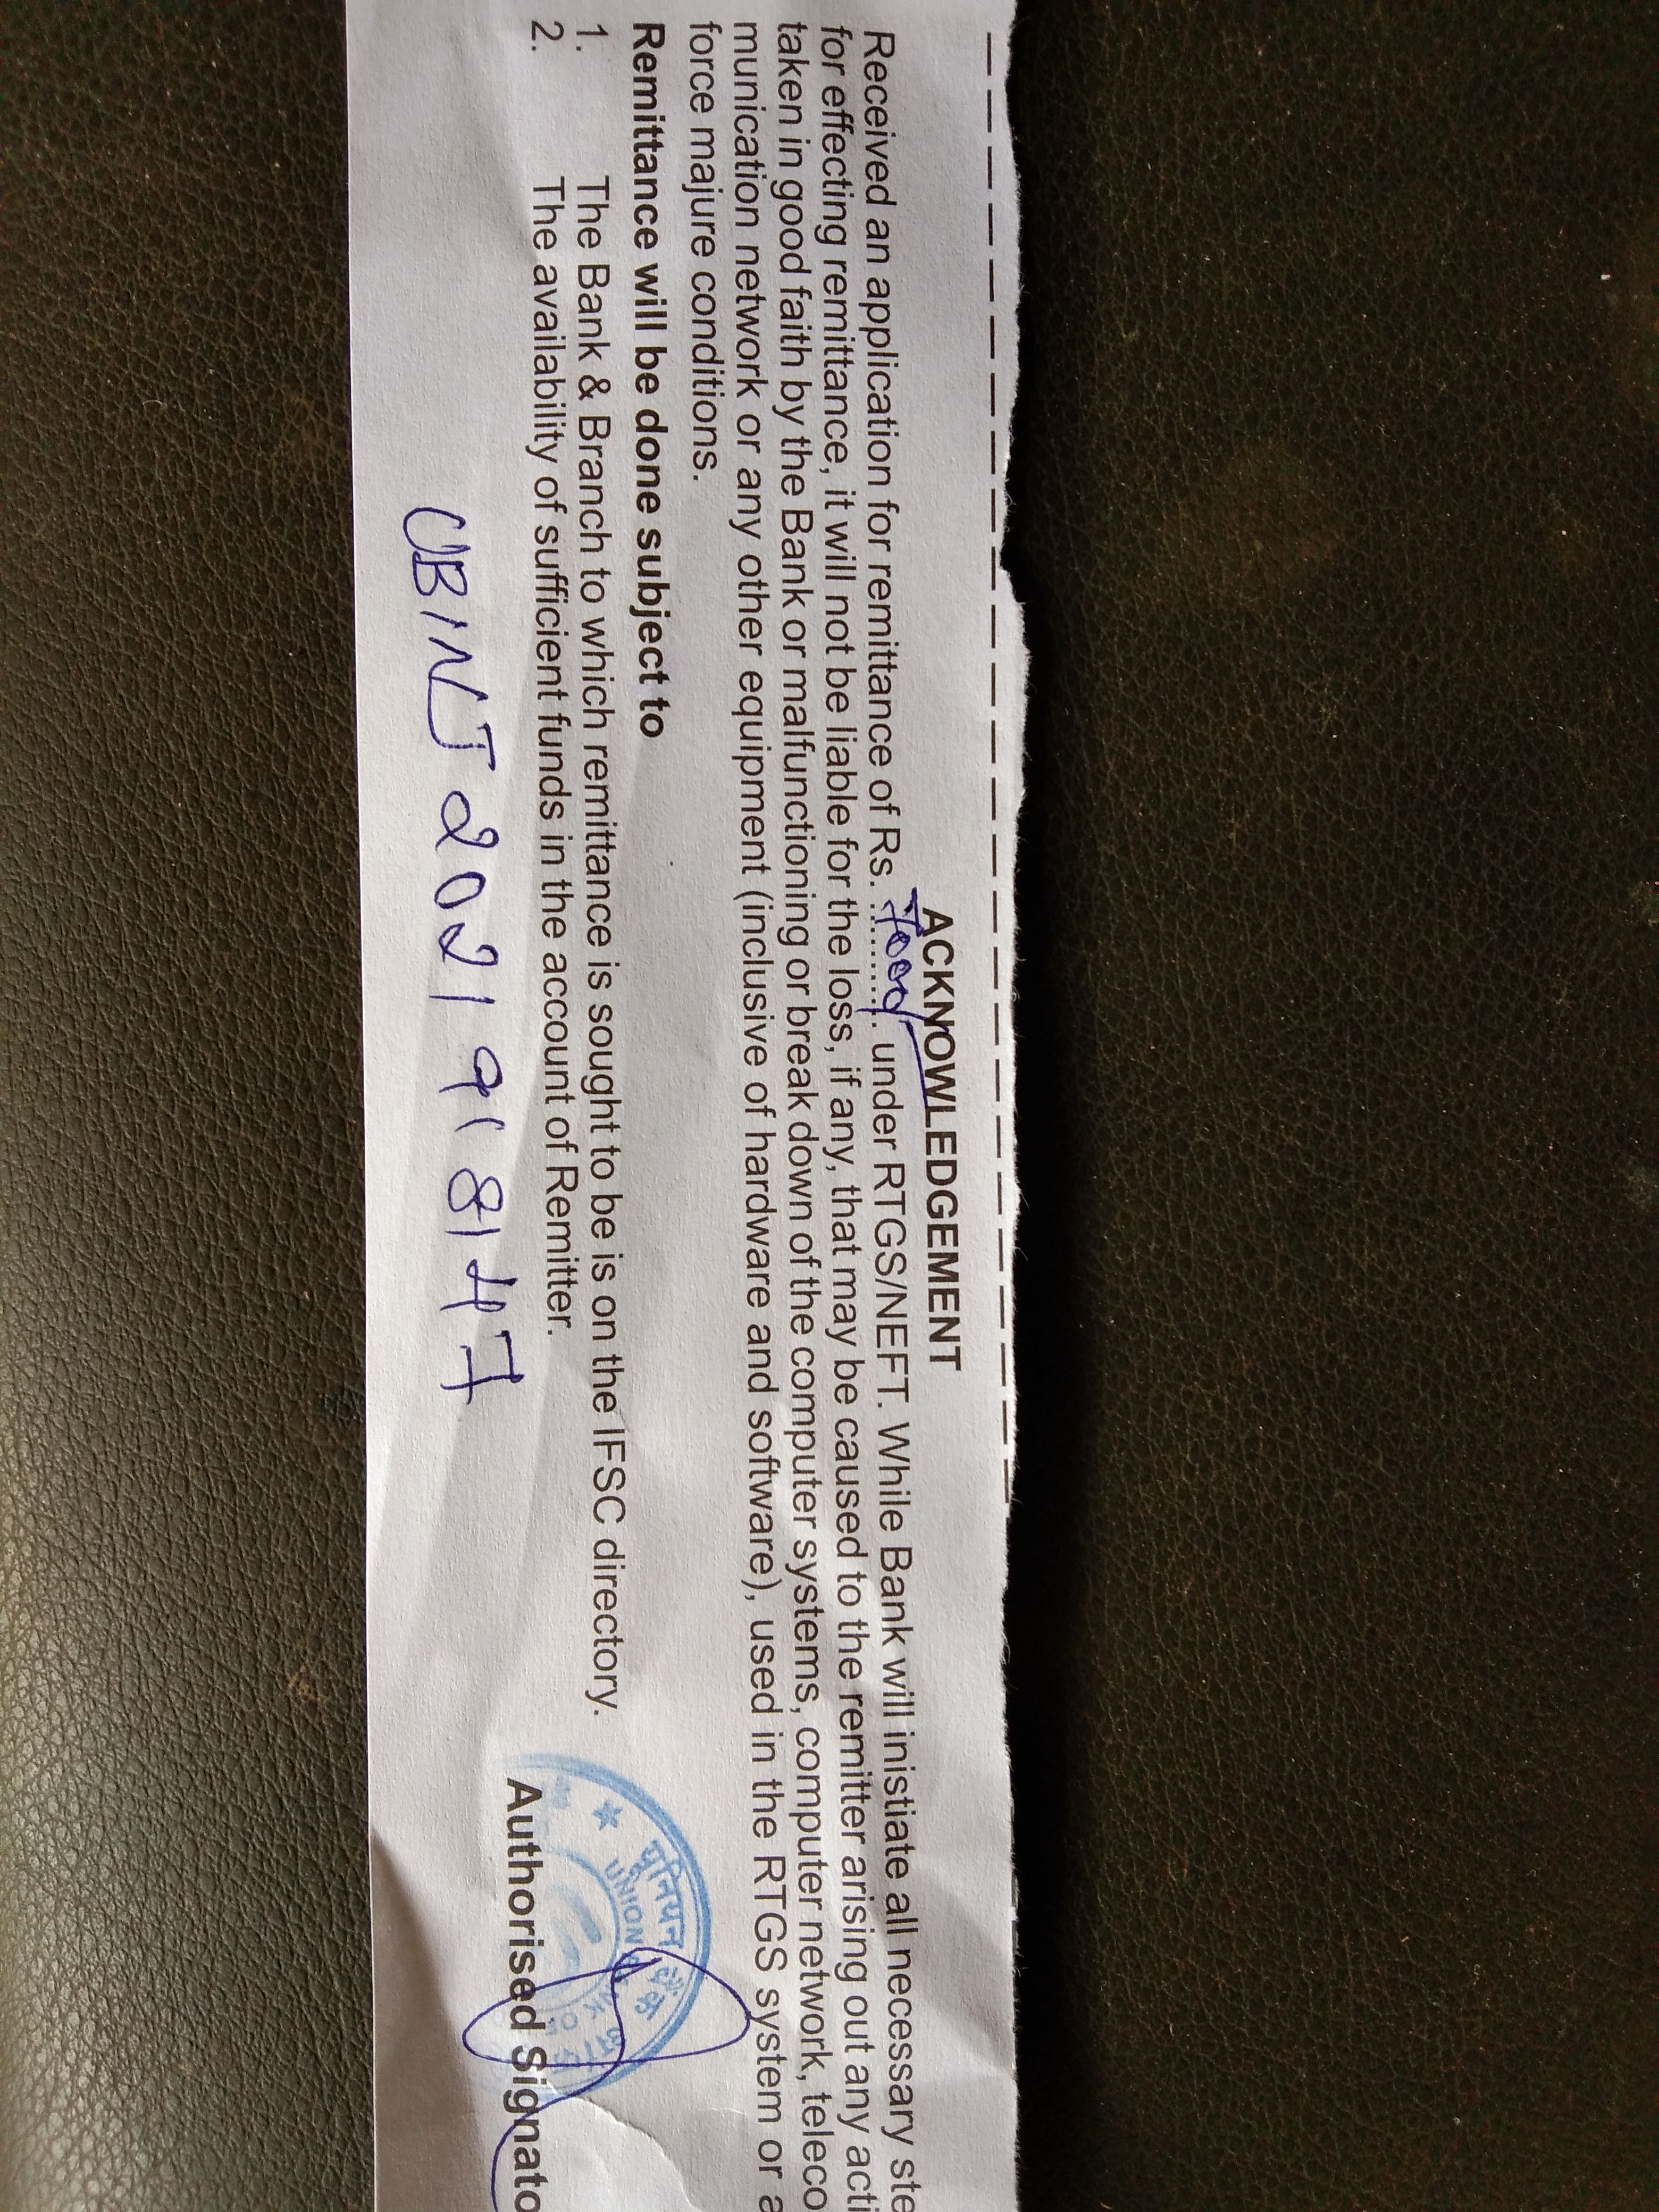 ACKNOWLEDGEMENT
Received an application for remittance of Rs. .......... under RTGS/NEFT. While Bank will inistiate all necessary ste
for effecting remittance, it will not be liable for the loss, if any, that may be caused to the remitter arising out any acti
taken in good faith by the Bank or malfunctioning or break down of the computer systems, computer network, teleco
munication network or any other equipment (inclusive of hardware and software), used in the RTGS system or a
force majure conditions.
Remittance will be done subject to
1. The Bank & Branch to which remittance is sought to be is on the IFSC directory.
2. The availability of sufficient funds in the account of Remitter.
यूनियन बैंक
UNION
OF
Authorised Signato
UBINJ2021918147